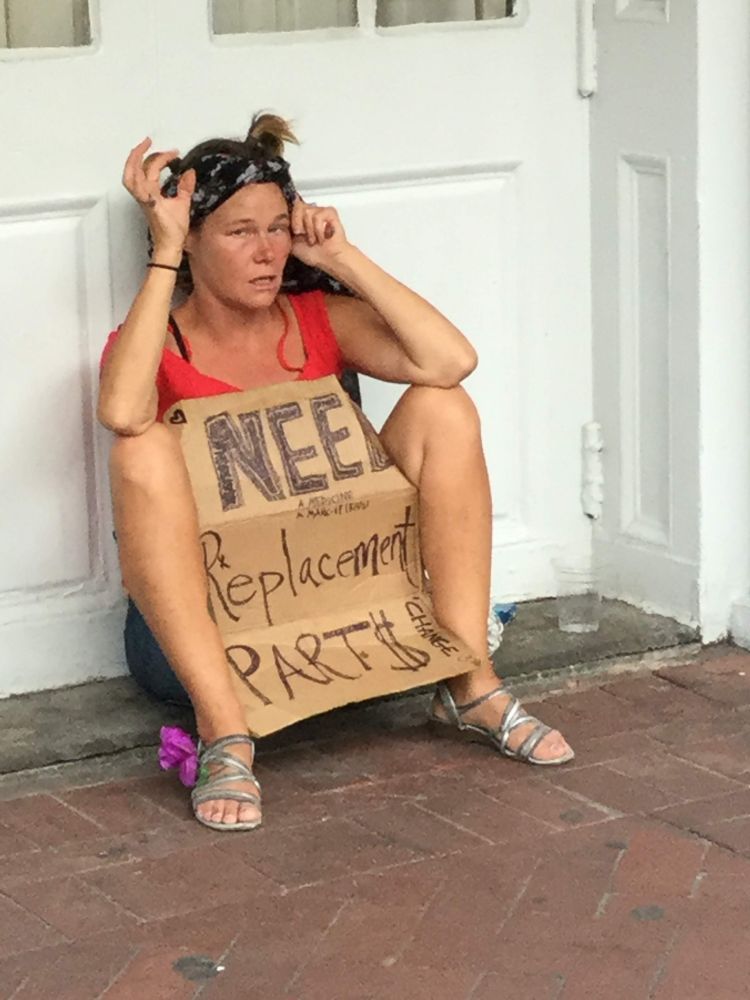 NEED
A MEDICINE
Replacement
PART$
CHANGE